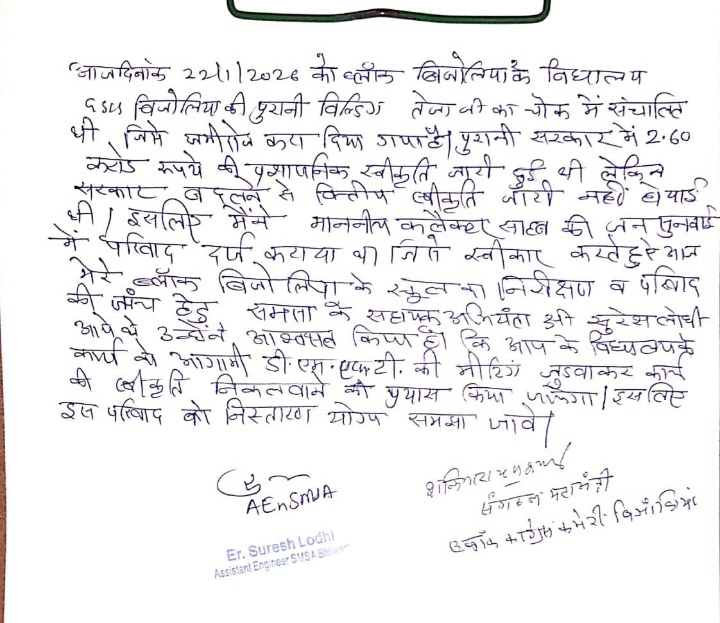 आज दिनांक 22/1/2026 को ब्लॉक बिजोलिया के विधालय
GSSS बिजोलिया की पुरानी विल्डिंग तेजाजी का चोक में संचालित
थी जिसे जमींदोज करा दिया गया है। पुरानी सरकार में 2.60
करोड रूपये की प्रशासनिक स्वीकृति जारी हुई थी लेकिन
सरकार बदलने से वित्तीय स्वीकृति जारी नहीं हो पाई
थी। इसलिए मैंने माननीय कलेक्टर साहब की जन सुनवाई
में परिवाद दर्ज कराया था जिसे स्वीकार करते हुए आज
मेरे ब्लॉक बिजोलिया के स्कूल का निरीक्षण व परिवाद
की जांच हेतु समसा के सहायक अभियंता श्री सुरेश लोधी
आये थे उन्होंने आश्वस्त किया है। कि आप के विधालय के
कार्य को आगामी डी.एम.एफ.टी. की मीटिंग में जुडवाकर कार्य
की स्वीकृति निकलवाने को प्रयास किया जायेगा। इसलिए
इस परिवाद को निस्तारण योग्य समझा जावे।
AEn SMSA
Er. Suresh Lodhi
Assistant Engineer SMSA
संगठन महामंत्री
ब्लॉक कांग्रेस कमेटी बिजोलियां